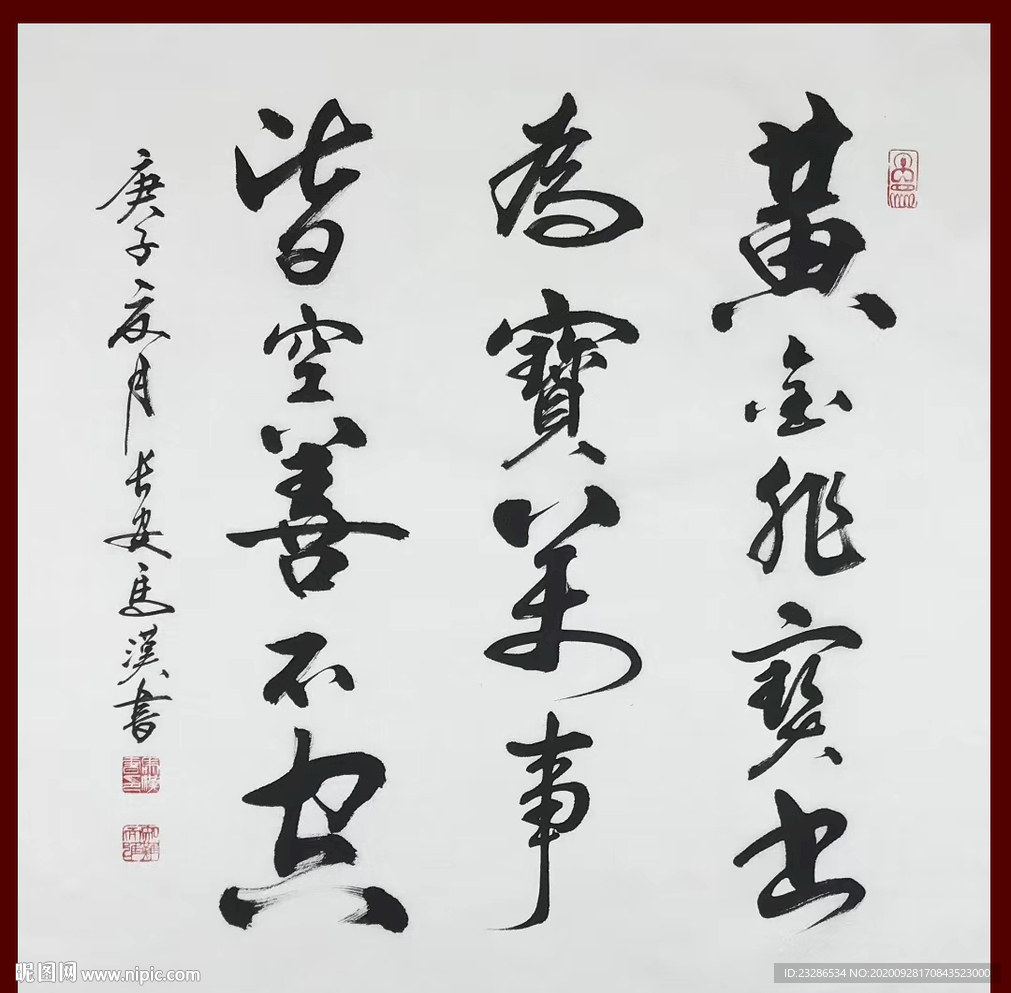 黄金非寶書
為寶萬事
皆空善不空
庚子夏月长安馬漢書
昵图网 www.nipic.com
ID:23286534 NO:20200928170843523000